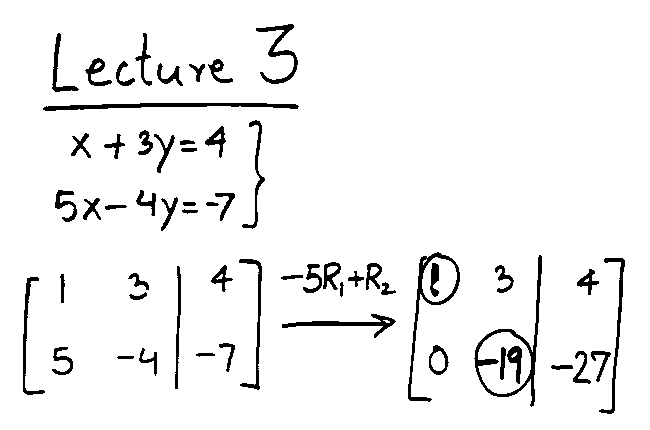 Lecture 3
x + 3y = 4
5x - 4y = -7
[ 1 3 | 4 ] -5R₁+R₂ [ 1 3 | 4 ]
[ 5 -4 | -7 ] → [ 0 -19 | -27 ]